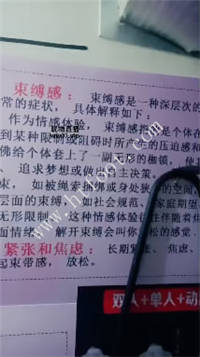 束缚感： 束缚感是一种深层次的
常的症状， 具体解释如下：
作为情感体验， 束缚感 是个体在
到某种限制或阻碍时所产生的压迫感和
佛给个体套上了一副无形的枷锁， 使
、 追求梦想或做出自主决策。
束， 如被绳索捆绑或身处狭 的空间
层面的束缚， 如社会规范、 家庭期望
无形限制。 这种情感体验往往伴随着焦
面情绪， 解开束缚会叫你 松的感觉
紧张和焦虑： 长期紧张、 焦虑、
起束带感， 放松。
双人+单人+动